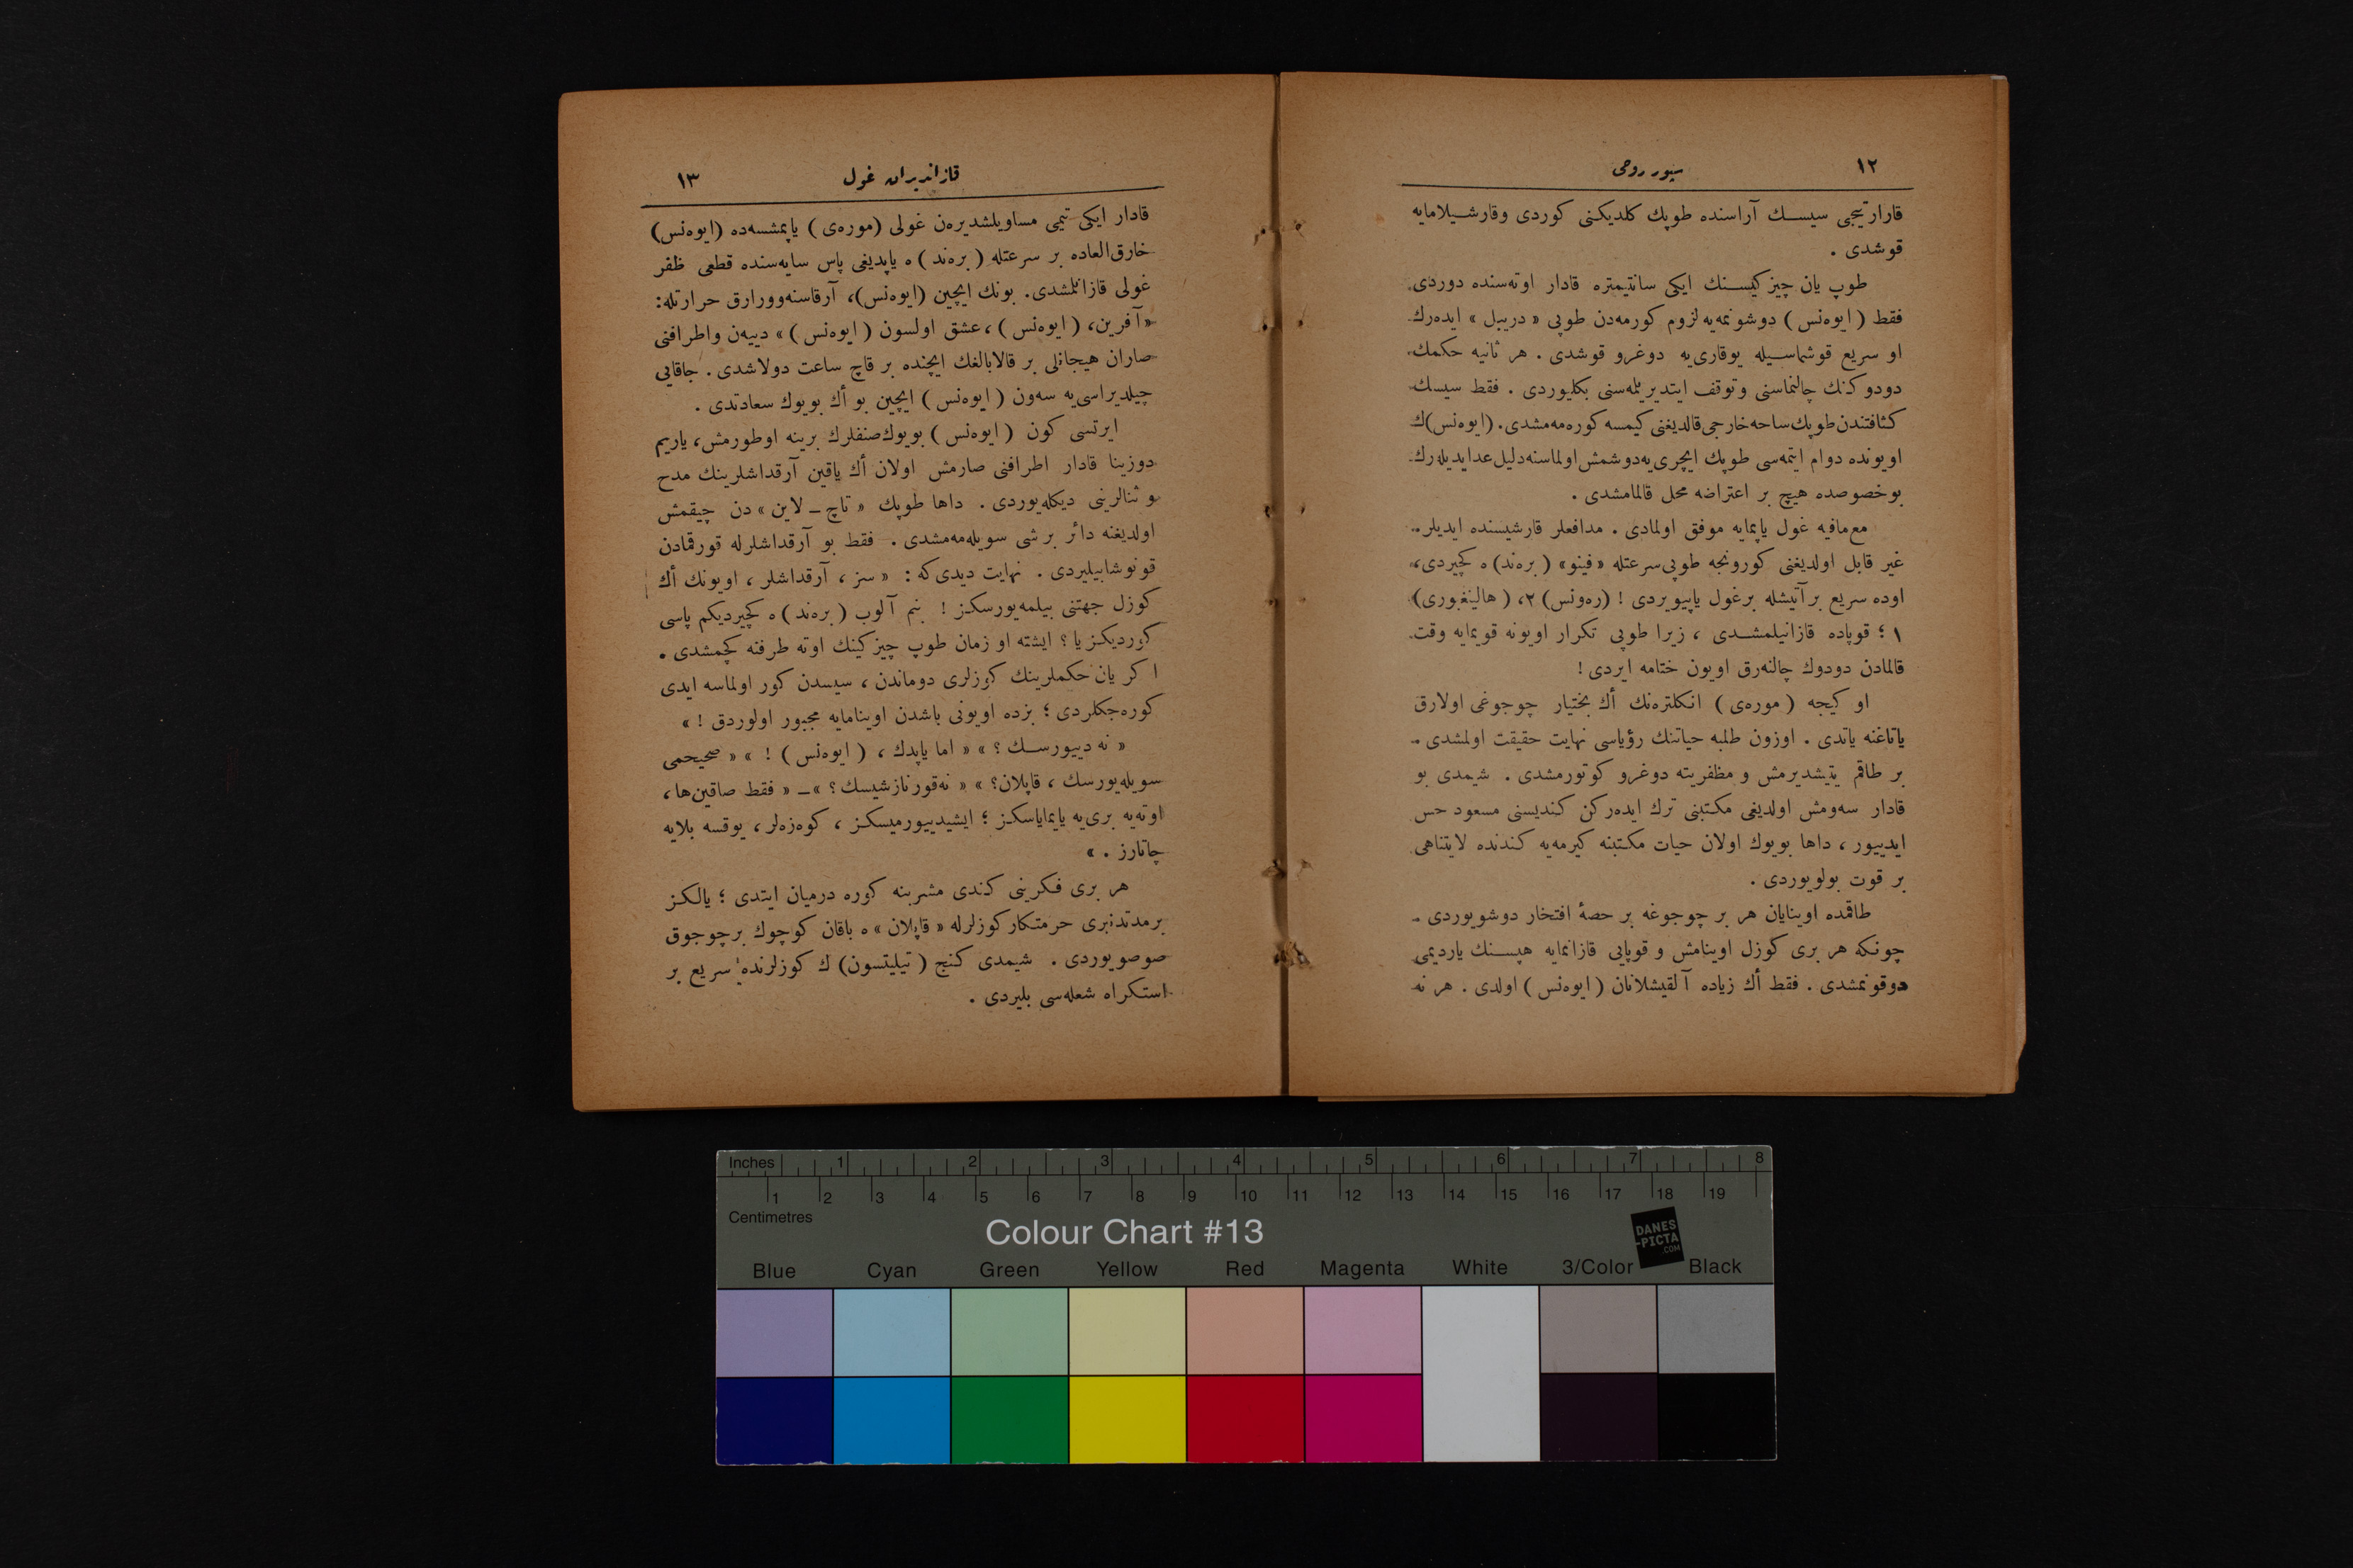 ١٢
سپور روحی
قارارتیجی سیسك آراسنده طوپك كلدیكنی كوردی وقارشیلامایه
قوشدی .
طوپ یان چیزكیسنك ایكی سانتیمتره قادار اوته‌سنده دوردی
فقط ( ایوه‌نس ) دوشونمه‌یه لزوم كورمه‌دن طوپی « دریبل » ایده‌رك
او سریع قوشماسیله یوقاری‌یه دوغرو قوشدی . هر ثانیه حكمك
دودوكنك چالنماسنی وتوقف ایتدیریلمه‌سنی بكلیوردی . فقط سیسك
كثافتندن طوپك ساحه خارجی قالدیغنی كیمسه كوره‌مه‌مشدی. (ایوه‌نس)ك
اویونده دوام ایتمه‌سی طوپك ایچری‌یه دوشمش اولماسنه دلیل عدایدیله‌رك
بوخصوصده هیچ بر اعتراضه محل قالمامشدی .
مع‌مافیه غول یاپمایه موفق اولمادی . مدافعلر قارشیسنده ایدیلر .
غیر قابل اولدیغنی كورونجه طوپی سرعتله « فینو » ( بره‌ند) ه كچیردی،
اوده سریع برآتیشله برغول یاپیویردی ! (ره‌ونس) ٢، ( هالینغبوری)
١ ؛ قوپاده قازانیلمشدی ، زیرا طوپی تكرار اویونه قویمایه وقت
قالمادن دودوك چالنه‌رق اویون ختامه ایردی !
او كیجه ( موره‌ی ) انكلتره‌نك أك بختیار چوجوغی اولارق
یاتاغنه یاتدی . اوزون طلبه حیاتنك رؤیاسی نهایت حقیقت اولمشدی .
بر طاقم یتیشدیرمش و مظفریته دوغرو كوتورمشدی . شیمدی بو
قادار سه‌ومش اولدیغی مكتبنی ترك ایده‌ركن كندیسنی مسعود حس
ایدییور ، داها بویوك اولان حیات مكتبنه كیرمه‌یه كندنده لایتناهی
بر قوت بولویوردی .
طاقمده اوینایان هر بر چوجوغه بر حصهٔ افتخار دوشویوردی .
چونكه هر بری كوزل اوینامش و قوپایی قازانمایه هپسنك یاردیمی
دوقونمشدی . فقط أك زیاده آلقیشلانان ( ایوه‌نس ) اولدی . هر نه
قازاندیران غول
١٣
قادار ایكی تیمی مساویلشدیره‌ن غولی (موره‌ی ) یاپمشسه‌ده (ایوه‌نس)
خارق‌العاده بر سرعتله ( بره‌ند ) ه یاپدیغی پاس سایه‌سنده قطعی ظفر
غولی قازانلمشدی. بونك ایچین (ایوه‌نس)، آرقاسنه‌وورارق حرارتله:
« آفرین، ( ایوه‌نس ) ، عشق اولسون ( ایوه‌نس ) » دییه‌ن واطرافنی
صاران هیجانلی بر قالابالغك ایچنده بر قاچ ساعت دولاشدی . جاقایی
چیلدیراسی‌یه سه‌ون ( ایوه‌نس ) ایچین بو أك بویوك سعادتدی .
ایرتسی كون ( ایوه‌نس ) بویوك صنفلرك برینه اوطورمش، یاریم
دوزینا قادار اطرافنی صارمش اولان أك یاقین آرقداشلرینك مدح
و ثنالرینی دیكله‌یوردی . داها طوپك « تاچ ـ لاین » دن چیقمش
اولدیغنه دائر برشی سویله‌مه‌مشدی . فقط بو آرقداشلرله قورقمادن
قونوشابیلیردی . نهایت دیدی‌كه : « سز ، آرقداشلر ، اویونك أك
كوزل جهتنی بیلمه‌یورسكز ! بنم آلوب ( بره‌ند ) ه كچیردیكم پاسی
كوردیكز یا ؟ ایشته او زمان طوپ چیزكینك اوته طرفنه كچمشدی .
اكر یان حكملرینك كوزلری دوماندن ، سیسدن كور اولماسه ایدی
كوره‌جكلردی ؛ بزده اویونی باشدن اوینامایه مجبور اولوردق ! »
« نه دییورسك ؟ » « اما یاپدك ، ( ایوه‌نس ) ! » « صحیحمی
سویله‌یورسك ، قاپلان؟ » « نه قورنازشیسك ؟ » ـ « فقط صاقین‌ها،
اوته‌یه بری‌یه یایمایاسكز ؛ ایشیدییورمیسكز ، كوه‌زه‌لر ، یوقسه بلایه
چاتارز . »
هر بری فكرینی كندی مشربنه كوره درمیان ایتدی ؛ یالكز
برمدتدنبری حرمتكار كوزلرله « قاپلان » ه باقان كوچوك برچوجوق
صوصویوردی . شیمدی كنج ( تیلیتسون) ك كوزلرنده سریع بر
استكراه شعله‌سی بلیردی .
Inches 1 2 3 4 5 6 7 8
1 2 3 4 5 6 7 8 9 10 11 12 13 14 15 16 17 18 19
Centimetres
Colour Chart #13
DANES
-PICTA
.COM
Blue Cyan Green Yellow Red Magenta White 3/Color Black